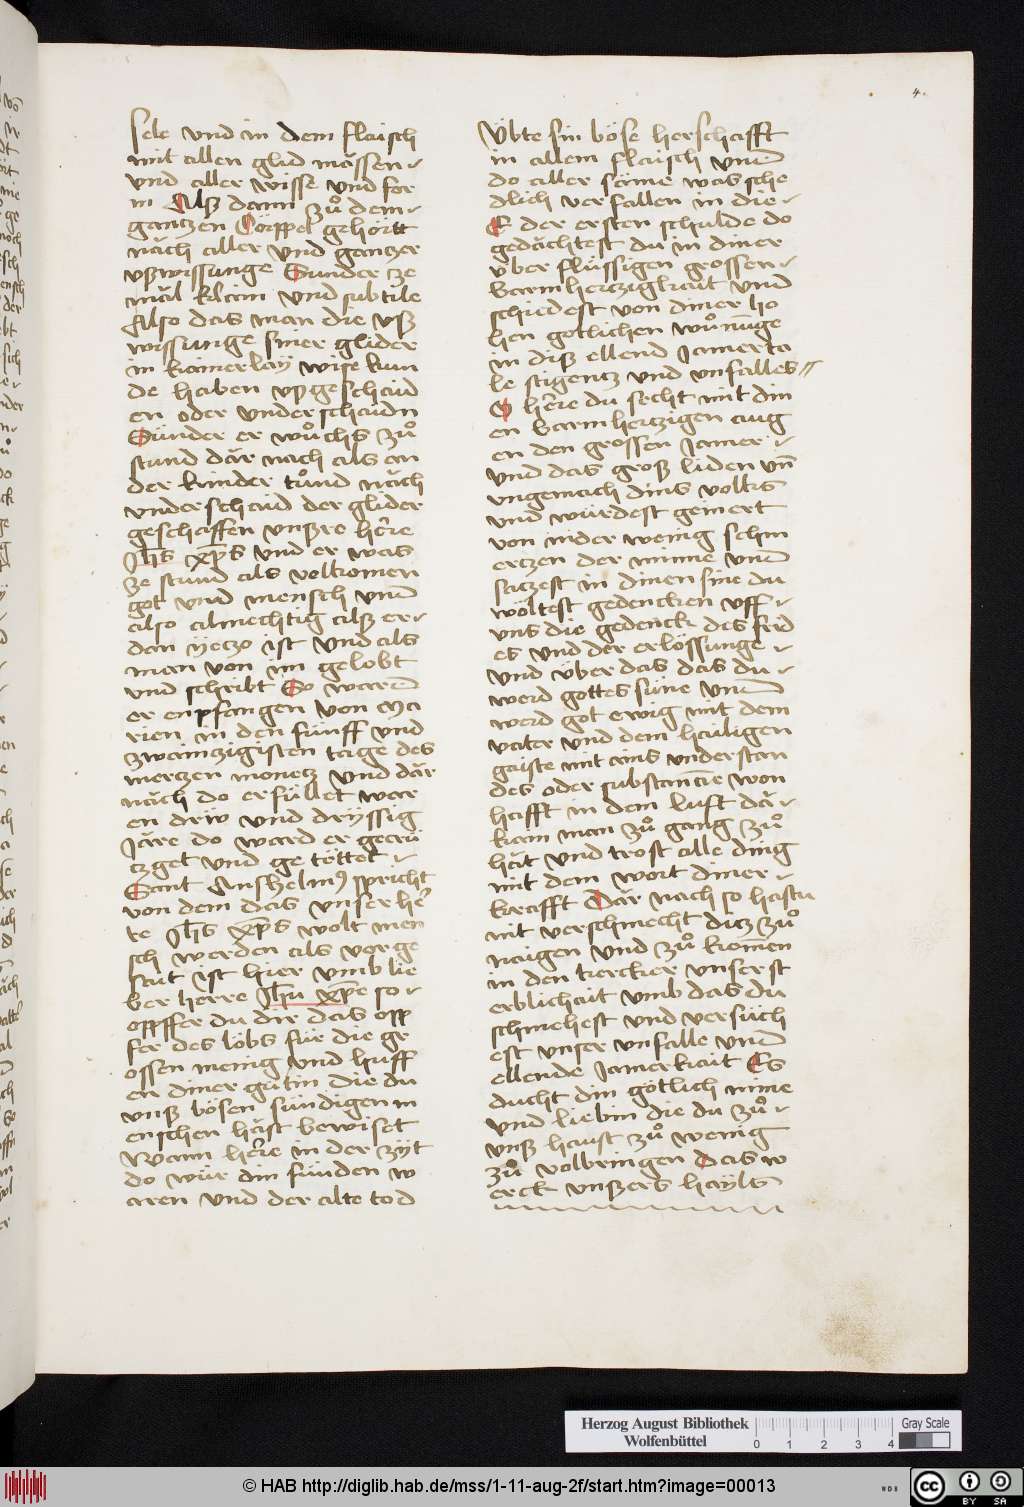 4.
sele vnd in dem flaisch
mit allen glid mässen
vnd aller wisse vnd for
m Alß dann zů dem
gantzen Cörppel gehörtt
näch aller vnd gantzer
vßwissunge Sunder ze
mäl klain vnd subtile
Also das man die vß
wissunge siner glider
in kainerläÿ wise kun
de haben vßgeschaid
en oder vnderschaidn
Sünder er wůchs zů
stund där nach als an
der kinder tůnd näch
vnderschaid der glider
geschaffen vnßre here
Jhs xps vnd er was
ze stund als volkomen
got vnd mensch vnd
also almechtig alß er
dan ÿeczo ist vnd als
man von im gelobt
vnd schribt So ward
er enpfangen von Ma
rien in den fünff vnd
zwainzigisten tage des
merczen monetz vnd där
näch do erfüllet war
en driw vnd drÿssig
Järe do ward er gecrü
tzget vnd ge töttet
Sant Anshelmus spricht
von dem das vnser her
re Jhs xps wolt men
sch werden als vorge
sait ist hier vmb lie
ber herre Jhu xpe so
opffer du dir das opp
fer des löbs für die gr
ossen menig vnd huff
en diner gütin die du
vnß bösen sündigen m
enschen häst bewiset
Wann here in der zÿt
do wür din fünden w
aren vnd der alte tod
Übte sin böse herschafft
in allem flaisch vnd
do aller säme was sche
dlich verfallen in die
E der ersten schulde do
gedächtest du in diner
über flüssigen grossen
barmhertzigkait vnd
schiedest von diner ho
hen gotlichen wůnuge
in diß ellend Jamerta
le stigentz vnd vnfalles
O here du secht mit din
en barmhertzigen aug
en den grossen Jamer
vnd das groß liden vn
vngemach dins volks
vnd würdest geinert
von nider wenig schm
ertzen der minne vnd
satzest in dinen sine du
wöltest gedencken vff
vns die gedenck des frid
es vnd der erlössunge
vnd über das das du
werd gottes süne vnd
werd got ewig mit dem
vater vnd dem hailigen
gaiste mit ains vnderstan
des oder substancie won
hafft in dem lufft där
kain man zů gang zů
hät vnd trost alle ding
mit dem wort diner
krafft Där nach so hastu
nit verschmecht dicz zů
naigen vnd zů komen
in den kercker vnser st
erblichait vmb das du
schmehest vnd versüch
est vnser vnfalle vnd
ellende Jamerkait Es
ducht din götlich mine
vnd liebin die du zů
vnß haust zů wenig
zů volbringen das w
erck vnßers haÿls
Herzog August Bibliothek
Wolfenbüttel
0 1 2 3 4
Gray Scale
© HAB http://diglib.hab.de/mss/1-11-aug-2f/start.htm?image=00013
WDB
cc BY SA